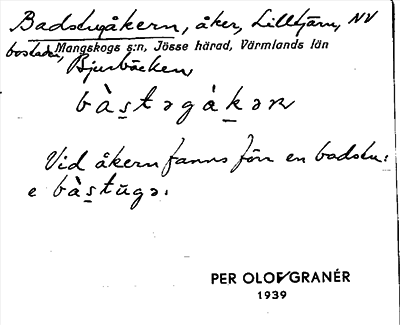 Badstugåkern, åker, Lilltjärn, NV
bostaden, Mangskogs s:n, Jösse härad, Värmlands län
Bjurbäcken
bàs̱təgák̠əṇ
Vid åkern fanns förr en badstu:
e bàs̱tūgə.
PER OLOF GRANÉR
1939